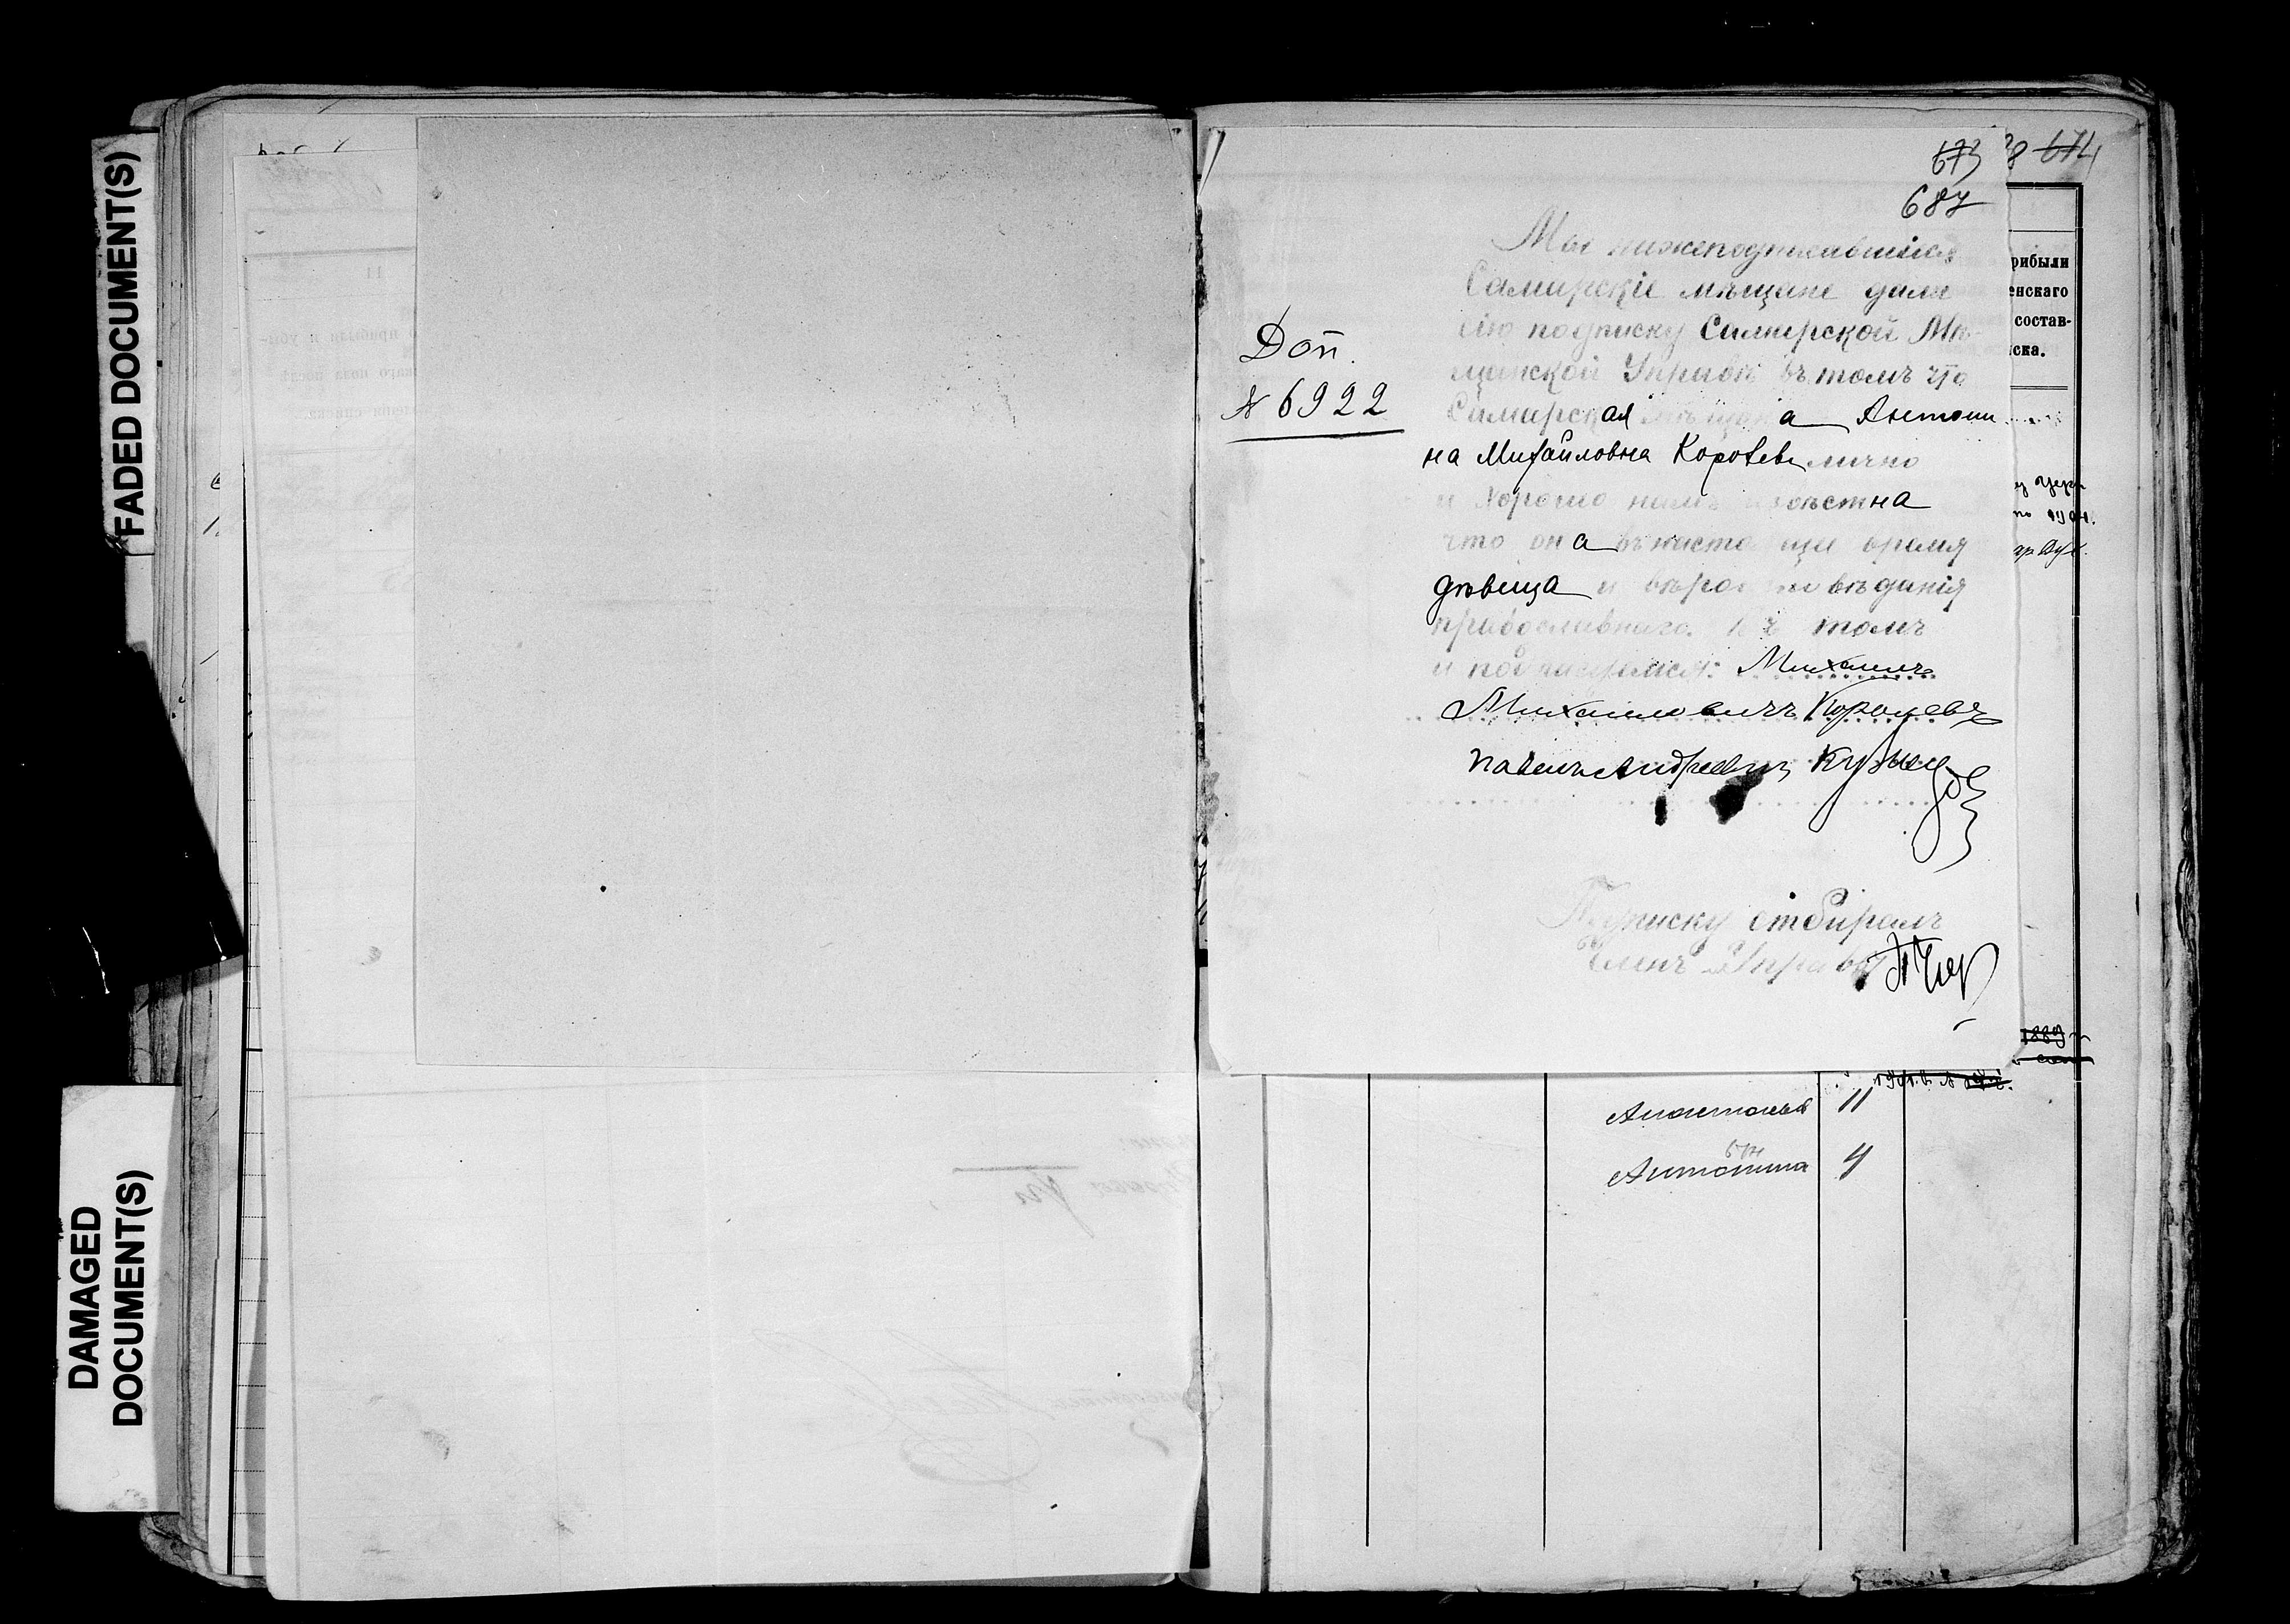 FADED DOCUMENT(S)
DAMAGED
DOCUMENT(S)
673
687
674
Доп.
№ 6922
Мы нижеподписавшіеся
Самарскіе мѣщане дали
сію подписку Самарской Мѣ-
щанской Управѣ въ томъ что
Самарская мѣщанка Антони
на Михайловна Королева лично
и хорошо намъ извѣстна
что она въ настоящее время
дѣвица и вѣроисповѣданія
православнаго. Въ томъ
и подписуемся: Михаилъ
Михаиловичъ Королевъ
Павелъ Андреевич
Подписку отбиралъ
Членъ Управы
рибыли
енскаго
состав-
иска.
1889
Анастасья 11
Антонина 4